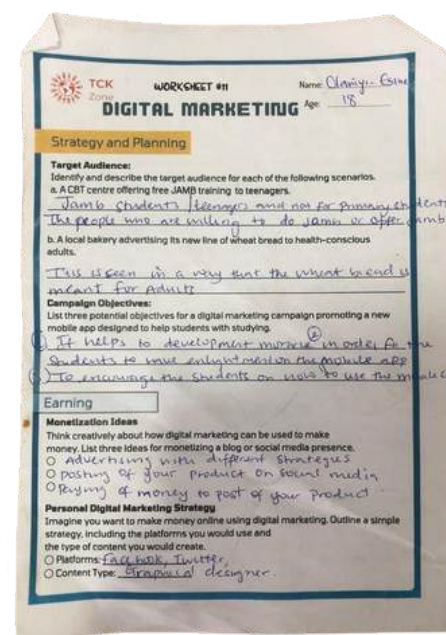 TCK
Zone
WORKSHEET #11
DIGITAL MARKETING
Name: Olaniyi
Age: 18
Strategy and Planning
Target Audience:
Identify and describe the target audience for each of the following scenarios.
a. A CBT centre offering free JAMB training to teenagers.
Jamb students / teenagers and not for primary students
The people who are willing to do jamb or offer jamb
b. A local bakery advertising its new line of wheat bread to health-conscious
adults.
This is seen in a way that the wheat bread is
meant for Adults
Campaign Objectives:
List three potential objectives for a digital marketing campaign promoting a new
mobile app designed to help students with studying.
It helps to development in order for the
Students to have enlightment on the mobile app
To encourage the students on how to use the
Earning
Monetization Ideas
Think creatively about how digital marketing can be used to make
money. List three ideas for monetizing a blog or social media presence.
Advertising with different strategies
posting of your product on social media
Paying of money to post of your product
Personal Digital Marketing Strategy
Imagine you want to make money online using digital marketing. Outline a simple
strategy, including the platforms you would use and
the type of content you would create.
Platforms: Facebook, Twitter,
Content Type: Graphical designer.